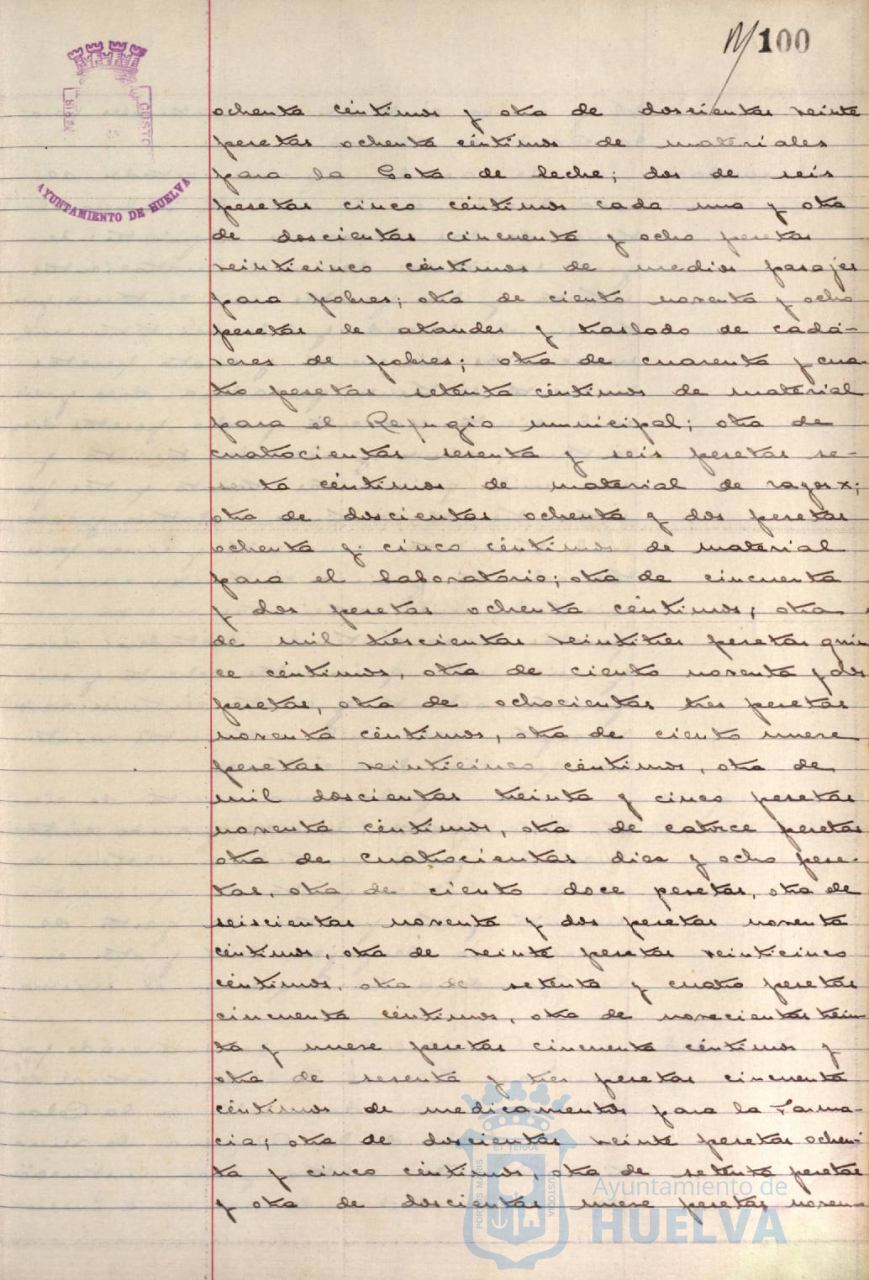 100
AYUNTAMIENTO DE HUELVA
ochenta céntimos y otra de doscientas veinte
pesetas ochenta céntimos de materiales
para la Gota de leche; dos de seis
pesetas cinco céntimos cada una y otra
de doscientas cincuenta y ocho pesetas
veinticinco céntimos de medios pasajes
para pobres; otra de ciento noventa y ocho
pesetas de ataudes y traslado de cadá-
veres de pobres; otra de cuarenta y cua-
tro pesetas setenta céntimos de material
para el Refugio municipal; otra de
cuatrocientas sesenta y seis pesetas se-
senta céntimos de material de rayos x;
otra de doscientas ochenta y dos pesetas
ochenta y cinco céntimos de material
para el laboratorio; otra de cincuenta
y dos pesetas ochenta céntimos, otra
de mil trescientas veintitres pesetas quin
ce céntimos, otra de ciento noventa y dos
pesetas, otra de ochocientas tres pesetas
noventa céntimos, otra de ciento nueve
pesetas veinticinco céntimos, otra de
mil doscientas treinta y cinco pesetas
noventa céntimos, otra de catorce pesetas
otra de cuatrocientas diez y ocho pese-
tas, otra de ciento doce pesetas, otra de
seiscientas noventa y dos pesetas noventa
céntimos, otra de veinte pesetas veinticinco
céntimos, otra de setenta y cuatro pesetas
cincuenta céntimos, otra de novecientas trein
ta y nueve pesetas cincuenta céntimos y
otra de sesenta y tres pesetas cincuenta
céntimos de medicamentos para la Farma-
cia; otra de doscientas veinte pesetas ochen-
ta y cinco céntimos, otra de setenta pesetas
y otra de doscientas nueve pesetas noven-
Ayuntamiento de
HUELVA